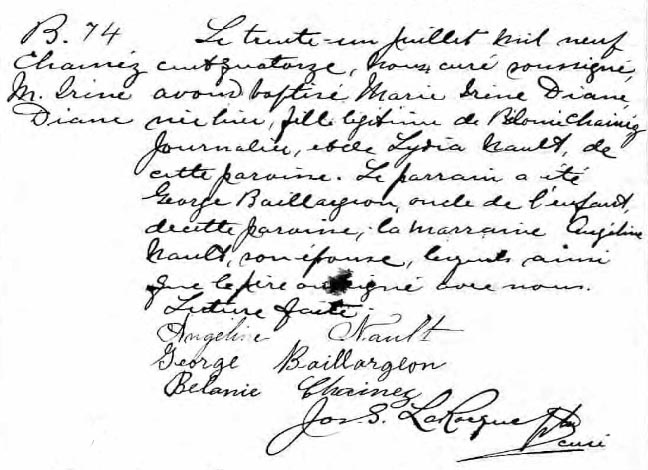 B. 74
Chainéz
M. Irène
Diane
Le trente-un juillet mil neuf
cent quatorze, nous, curé soussigné,
avons baptisé Marie Irène Diane,
née hier, fille légitime de Bélonie Chainéz
journalier, et de Lydia Nault, de
cette paroisse. Le parrain a été
George Baillargeon, oncle de l'enfant,
de cette paroisse, la marraine Angéline
Nault, son épouse, lesquels ainsi
que le père ont signé avec nous.
Lecture faite.
Angeline Nault
George Baillargeon
Belanie Chainez
Jos S. LaRocque Ptre
curé